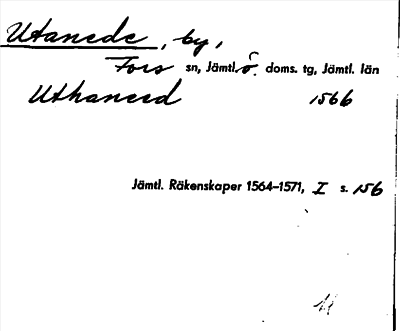 Utanede, by,
Fors sn, Jämtl. ö. doms. tg, Jämtl. län
Uthaneed 1566
Jämtl. Räkenskaper 1564–1571, I s. 156